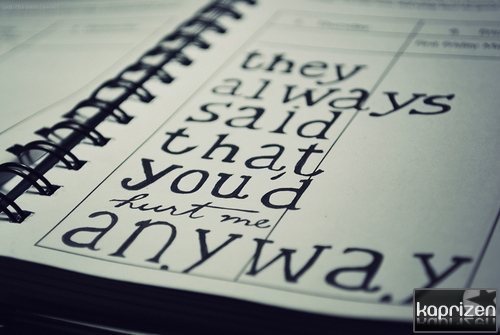 they
always
said
that
you'd
hurt me
anyway
kaprizen